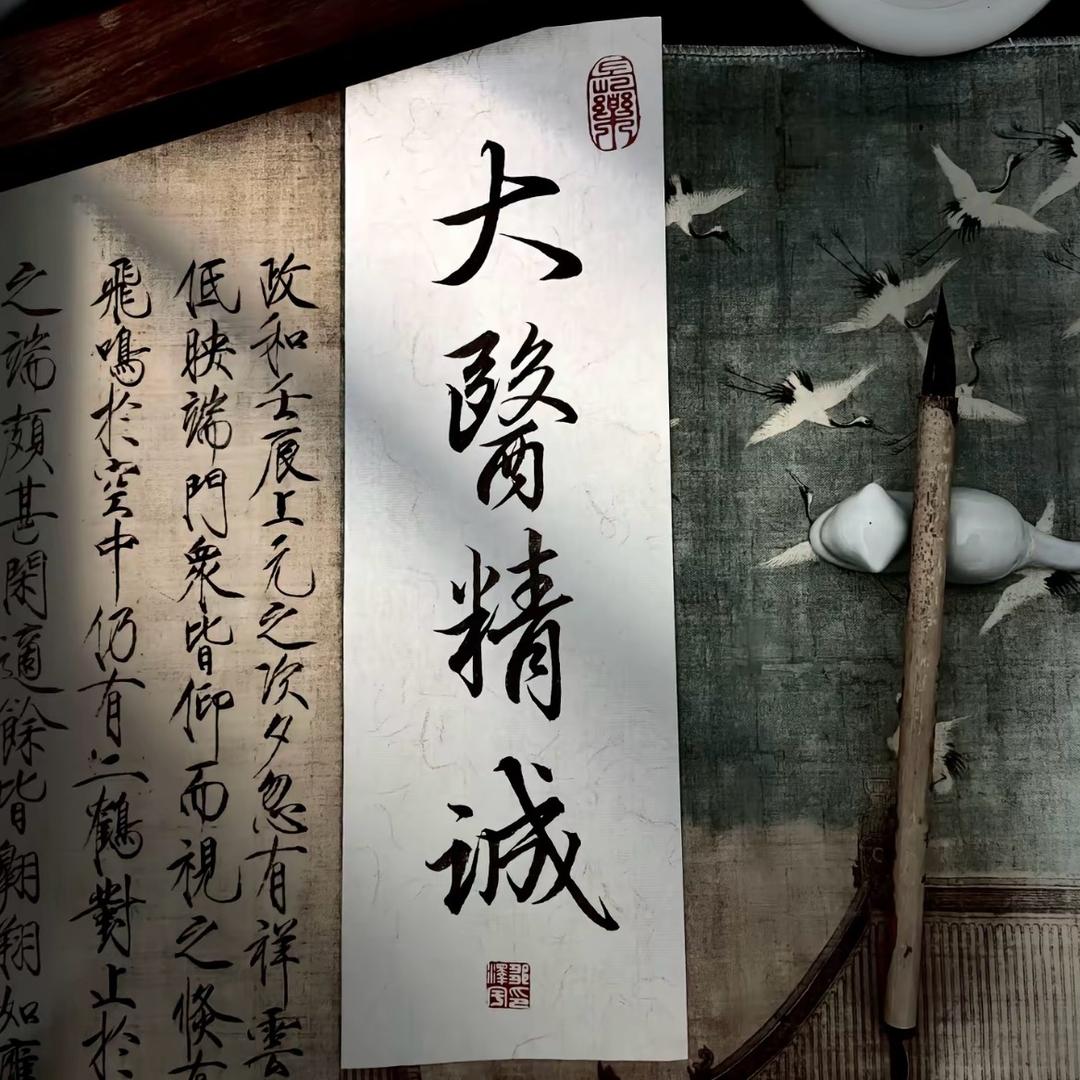 大醫精誠
鄒印
澤宇
政和壬辰上元之次夕忽有祥雲
低映端門衆皆仰而視之倏有
飛鳴於空中仍有二鶴對止於
之端頗甚閑適餘皆翱翔如應